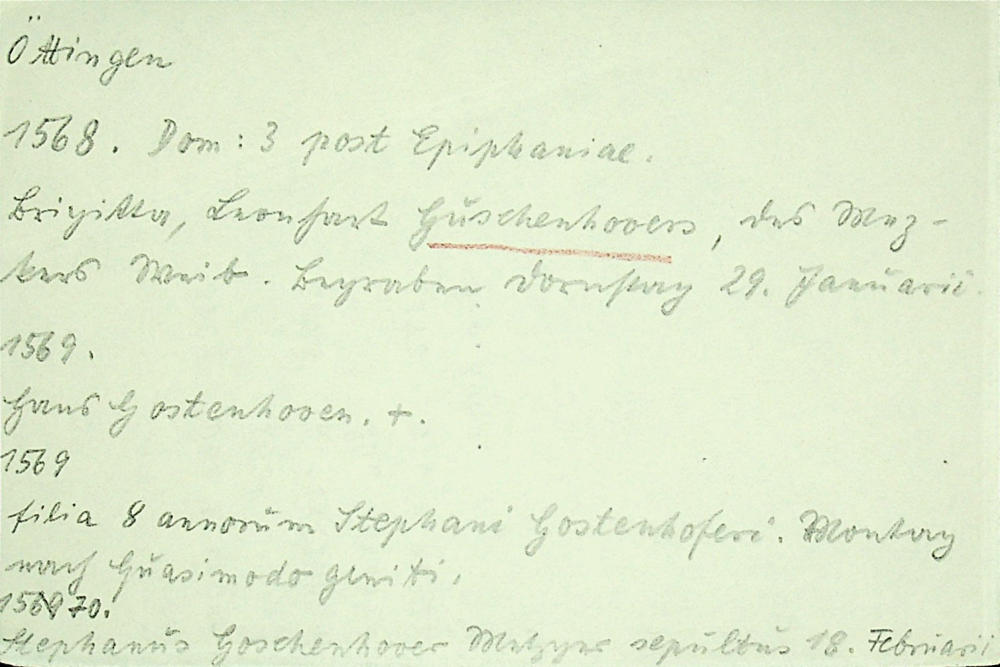 Öttingen
1568. Dom: 3 post Epiphaniae.
Brigitta, Leonhart Guschenhovers, des Mez-
kers Weib. Begraben Dornstag 29. Januarii.
1569.
Hans Gostenhoven. +.
1569
filia 8 annorum Stephani Gostenhoferi. Montag
nach Quasimodo geniti.
70.
Stephanus Goschenhover Metzger sepultus 18. Februarii